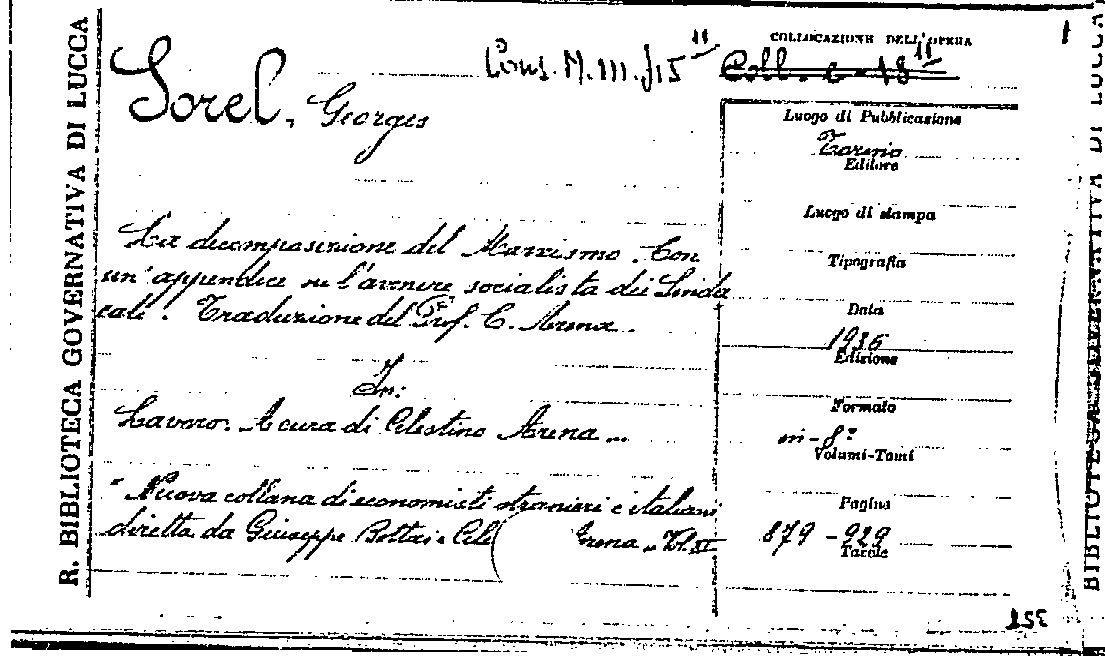 R. BIBLIOTECA GOVERNATIVA DI LUCCA
COLLOCAZIONE DELL'OPERA
Cons. M. III. J15 11
Coll. c - 18 11
Sorel, Georges
La decomposizione del Marxismo. Con
un'appendice su l'avenire socialista dei Sinda
cati. Traduzione del Prof. C. Arena.
In:
Lavoro. A cura di Celestino Arena ..
" Nuova collana di economisti stranieri e italiani
diretta da Giuseppe Bottai e Cele Arena " Vol. XI
Luogo di Pubblicazione
Torino
Editore
Luogo di stampa
Tipografia
Data
1936
Edizione
Formato
in-8°
Volumi-Tomi
Pagine
879 - 929
Tavole